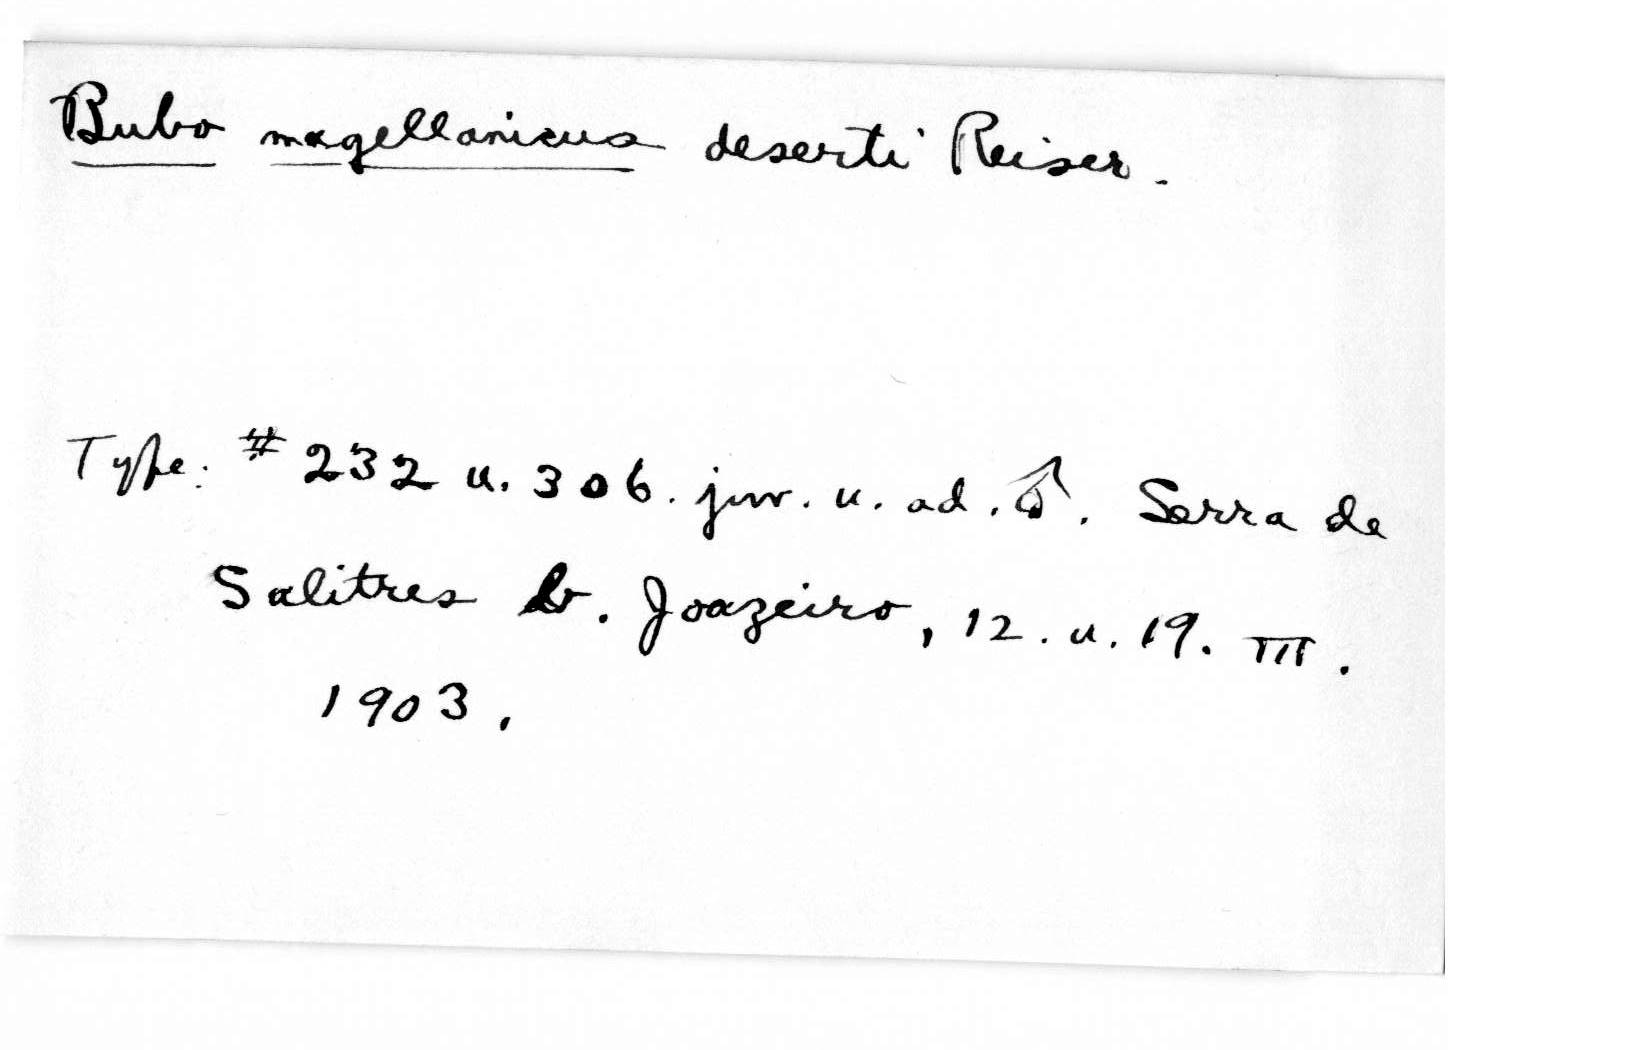 Bubo magellanicus deserti Reiser.
Type: # 232 u. 306. juv. u. ad. ♂. Serra de
Salitres b. Joazeiro, 12. u. 19. III.
1903.